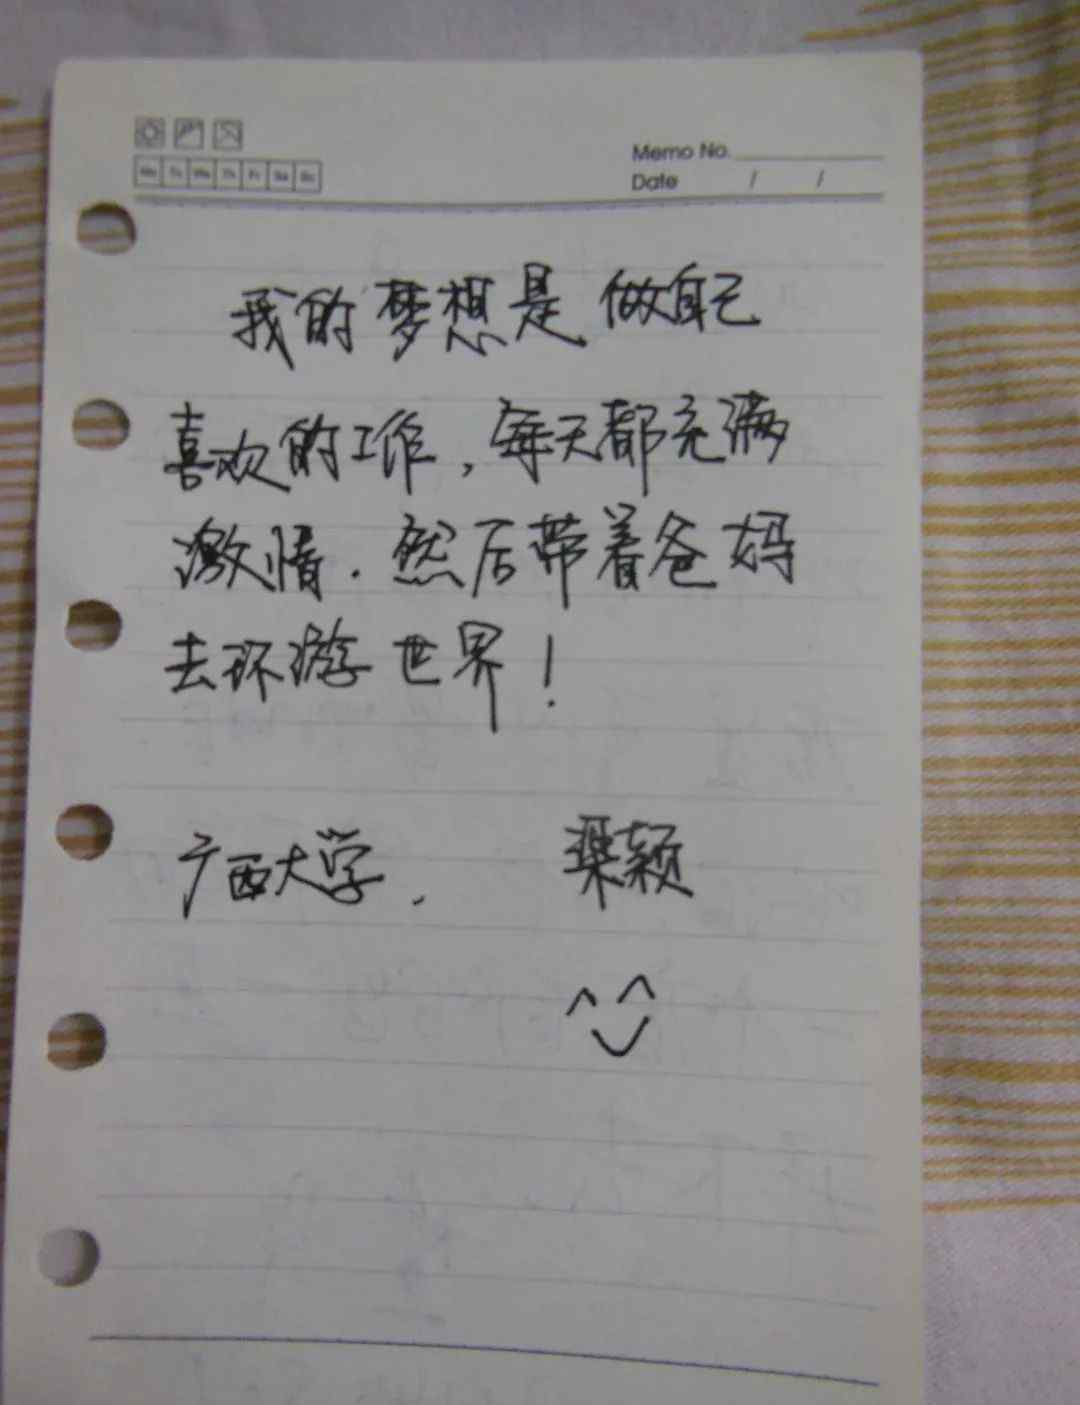 Memo No.
Date / /
Mo Tu We Th Fr Sa Su
我的梦想是做自己
喜欢的工作,每天都充满
激情.然后带着爸妈
去环游世界!
广西大学. 梁颖